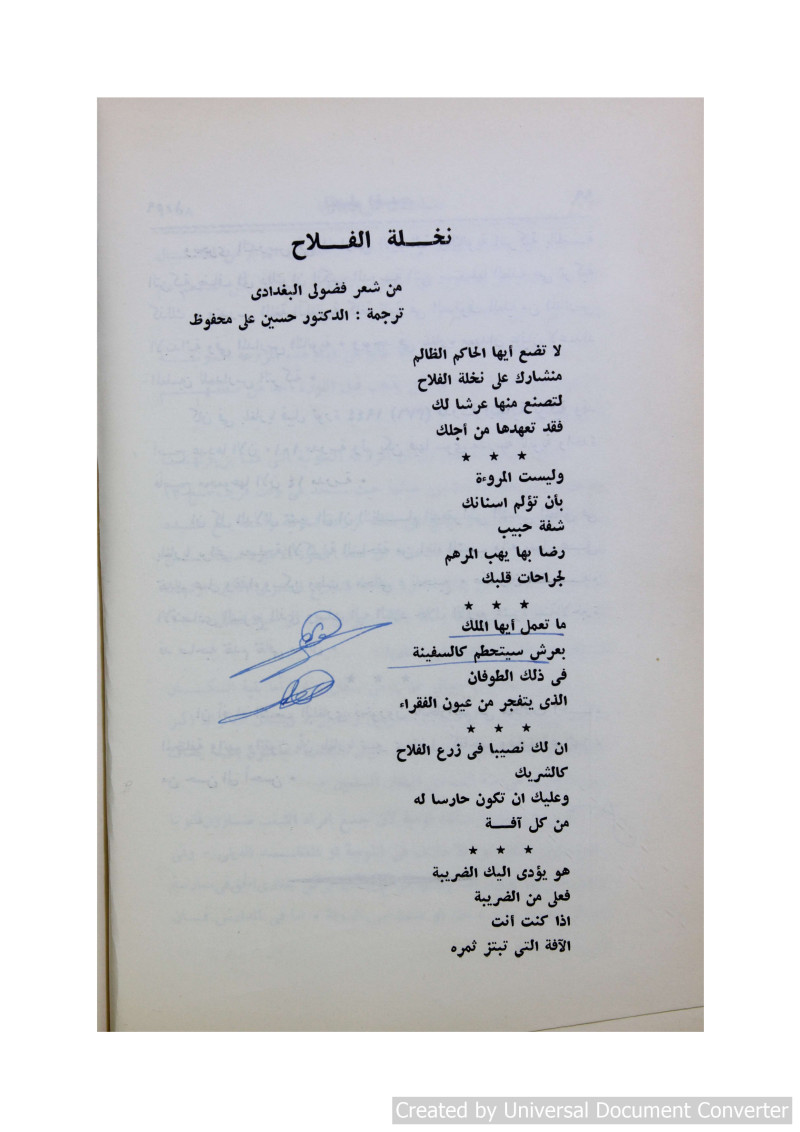 نخلة الفلاح
من شعر فضولى البغدادى
ترجمة : الدكتور حسين على محفوظ
لا تضع أيها الحاكم الظالم
منشارك على نخلة الفلاح
لتصنع منها عرشا لك
فقد تعهدها من أجلك
★ ★ ★
وليست المروءة
بأن تؤلم اسنانك
شفة حبيب
رضا بها يهب المرهم
لجراحات قلبك
★ ★ ★
ما تعمل أيها الملك
بعرش سيتحطم كالسفينة
فى ذلك الطوفان
الذى يتفجر من عيون الفقراء
★ ★ ★
ان لك نصيبا فى زرع الفلاح
كالشريك
وعليك ان تكون حارسا له
من كل آفة
★ ★ ★
هو يؤدى اليك الضريبة
فعلى من الضريبة
اذا كنت أنت
الآفة التى تبتز ثمره
Created by Universal Document Converter